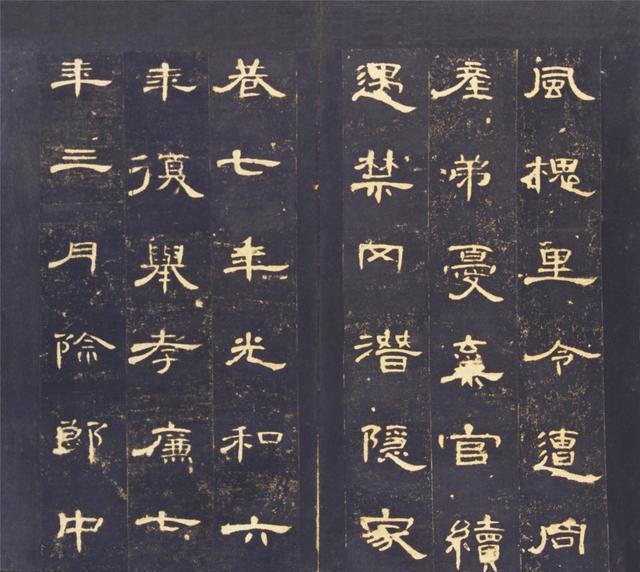 風槐里令遭同
產弟憂棄官續
遇禁网潛隱家
巷七年光和六
年復舉孝廉七
年三月除郎中